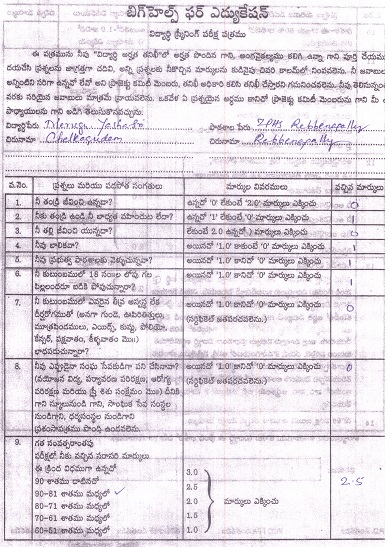 బిగ్‌హెల్ప్ ఫర్ ఎడ్యుకేషన్
విద్యార్థి స్క్రీనింగ్ పరీక్ష పత్రము
ఈ పత్రమును నీవు "విద్యార్థి అర్హత తనిఖీ"లో అర్హత పొందిన గాని, అంగవైకల్యము కలిగి ఉన్నా గాని పూర్తి చేయుము
దయచేసి ప్రశ్నలను జాగ్రత్తగా చదివి, అన్ని ప్రశ్నలకు నీకొచ్చిన మార్కులను కుడివైపు చివరి కాలమ్‌లో నింపవలెను. నీ జవాబులు
అన్నింటివి సరిగా ఉన్నదో లేదో అని ప్రాజెక్టు కమిటీ మెంబరు, తనిఖీ అధికారి కలిగి తనిఖీ చేస్తారని గమనించవలెను. నీవు తెలిసినన్నంత
వరకు సరియైన జవాబులు మాత్రమే వ్రాయవలెను. ఒకవేళ ఏ ప్రశ్నయైన అర్థము కానిచో ప్రాజెక్టు కమిటీ మెంబరును గాని మీ
పాధ్యాయులను గాని అడిగి తెలుసుకొనవచ్చును.
విద్యార్థిపేరు Merugu పాఠశాల పేరు ZPHS Rebbenapally
చిరునామా Chelkagudem చిరునామా Rebbenapally
వ.నెం. ప్రశ్నలు మరియు పరిస్థితి సంగతులు మార్కుల వివరములు వచ్చిన మార్కులు
1. నీ తండ్రి జీవించి ఉన్నాడా? ఉన్నచో '0' లేకుంటే '2.0' మార్కులు ఎక్కించు 0
2. నీకు తండ్రి ఉండి నీ బాధ్యత వహించుట లేదా? ఉన్నచో '1' లేకుంటే '0' మార్కులు ఎక్కించు
3. నీ తల్లి జీవించి యున్నదా? లేకుంటే 2.0 ఉన్నచో '0' మార్కులు ఎక్కించు 0
4. నీవు బాలికవా? అయినచో '1.0' కాకుంటే '0' మార్కులు ఎక్కించు 1
5. నీవు ప్రభుత్వ పాఠశాలకు వెళ్ళుచున్నావా? అయినచో '1.0' కానిచో '0' మార్కులు ఎక్కించు 1
6. నీ కుటుంబములో 16 సంల లోపు గల అయినచో '1.0' కానిచో '0' మార్కులు ఎక్కించు 1
పిల్లలందరూ బడికి పోవుచున్నారా?
7. నీ కుటుంబములో ఎవరైన తీవ్ర అస్వస్థత లేక అయినచో '1.0' కానిచో '0' మార్కులు ఎక్కించు 0
దీర్ఘరోగముతో (అనగా గుండె, ఊపిరితిత్తులు, (సర్టిఫికెట్ జతపరచవలెను.)
మూత్రపిండములు, ఎయిడ్స్, కుష్ఠు, పోలియో,
కేన్సర్, పక్షవాతం, కీళ్ళవాతం మొ॥)
బాధపడుచున్నారా?
8. నీవు ఎప్పుడైనా సంఘ సేవకుడిగా పని చేసినావా? అయినచో '1.0' కానిచో '0' మార్కులు ఎక్కించు 0
(వయోజన విద్య, పర్యావరణ పరిరక్షణ; ఆరోగ్య (సర్టిఫికెట్ జతపరచవలెను.)
పరిరక్షణ మరియు స్త్రీ శిశు సంక్షేమం మొ॥) దీనికి
గాని స్కూలునుండి గాని, సాంఘిక సేవ సంస్థల
నుండిగాని, ధర్మసంస్థల నుండిగాని
ప్రశంసాపత్రము పొంది ఉండవలెను.
9. గత సంవత్సరాంతపు
పరీక్షలో నీకు వచ్చిన సరాసరి మార్కులు
ఈ క్రింది విధముగా ఉన్నచో 3.0
90 శాతము దాటినచో 2.5 2.5
90-81 శాతము మధ్యలో ✓ 2.5
80-71 శాతము మధ్యలో 2.0 మార్కులు ఎక్కించు
70-61 శాతము మధ్యలో 1.5
60-51 శాతము మధ్యలో 1.0